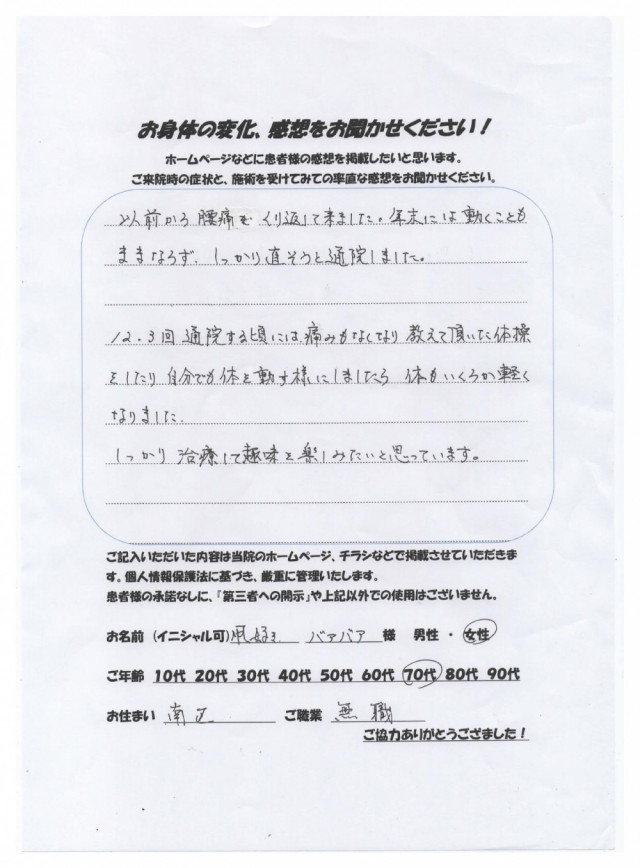 お身体の変化、感想をお聞かせください!
ホームページなどに患者様の感想を掲載したいと思います。
ご来院時の症状と、施術を受けてみての率直な感想をお聞かせください。
以前から腰痛をくり返して来ました。年末には動くことも
ままならず、しっかり直そうと通院しました。
12.3回通院する頃には、痛みもなくなり教えて頂いた体操
をしたり自分でも体を動す様にしましたら体もいくらか軽く
なりました。
しっかり治療して趣味を楽しみたいと思っています。
ご記入いただいた内容は当院のホームページ、チラシなどで掲載させていただきま
す。個人情報保護法に基づき、厳重に管理いたします。
患者様の承諾なしに、「第三者への開示」や上記以外での使用はございません。
お名前(イニシャル可) バァバア 様 男性・女性
ご年齢 10代 20代 30代 40代 50代 60代 70代 80代 90代
お住まい 南区 ご職業 無職
ご協力ありがとうござました!